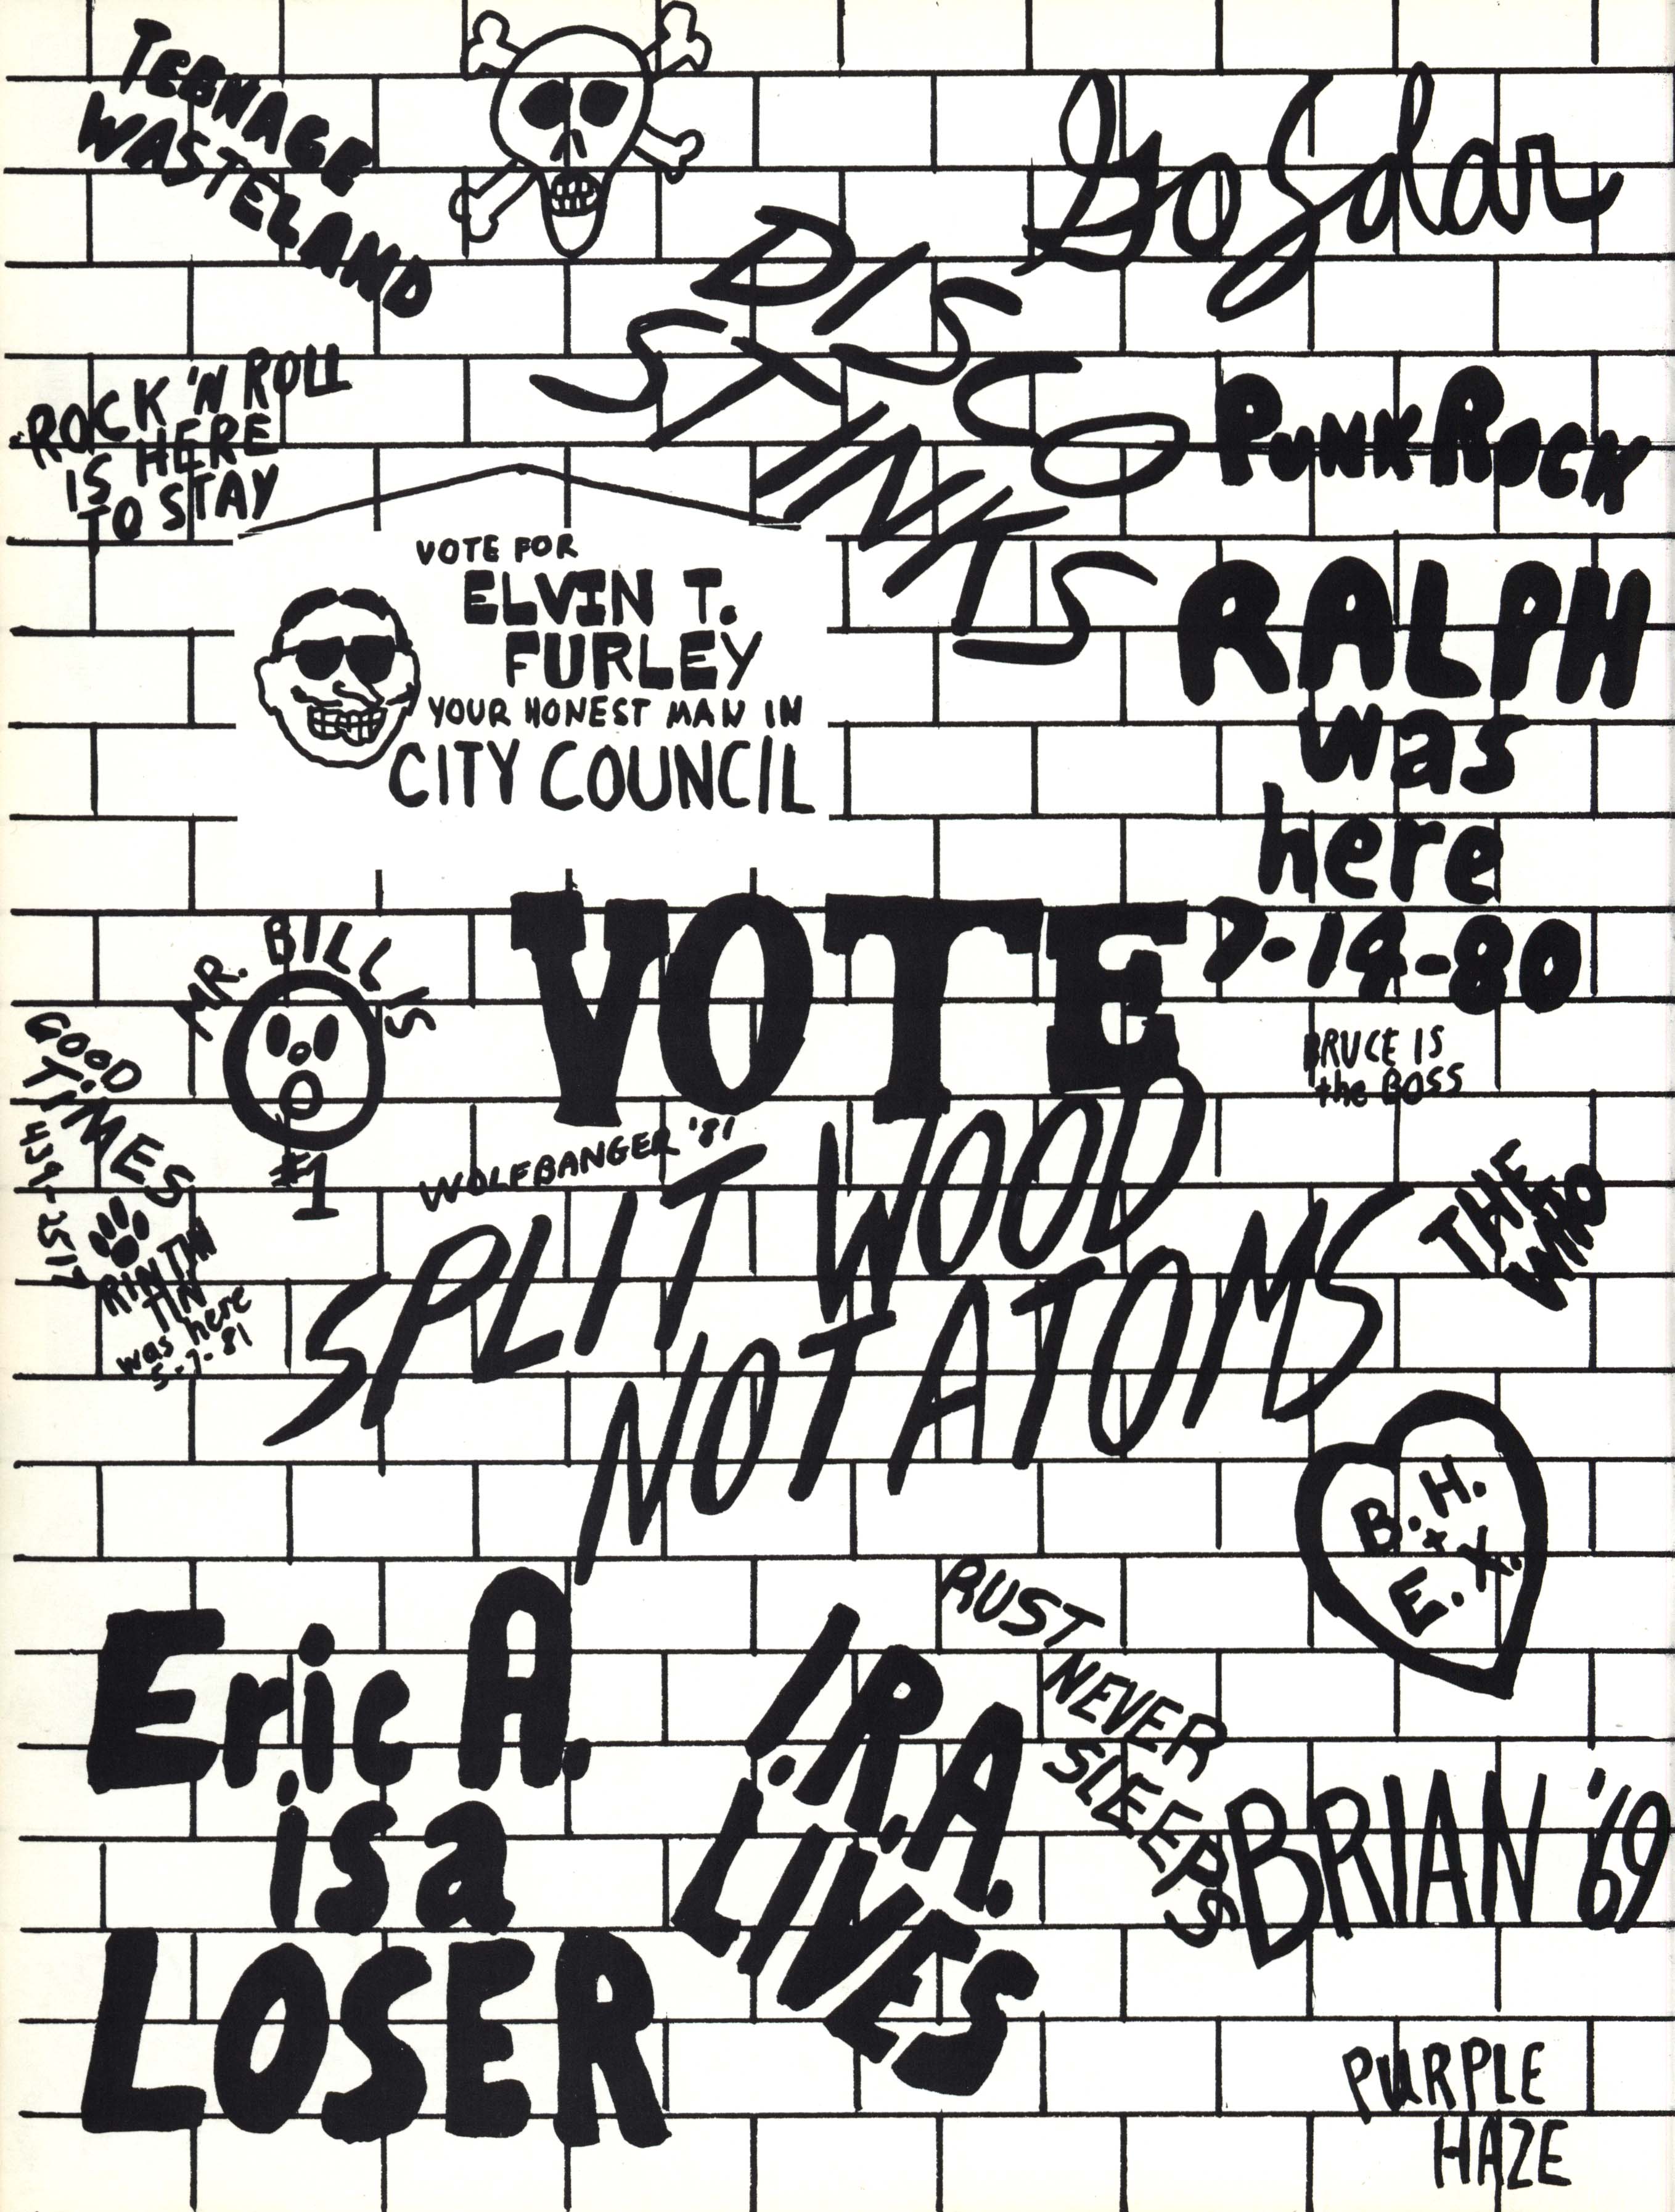 TEENAGE
WASTELAND
Go Solar
DISCO
STINKS
ROCK 'N ROLL
IS HERE
TO STAY
PUNK ROCK
VOTE FOR
ELVIN T.
FURLEY
YOUR HONEST MAN IN
CITY COUNCIL
RALPH
was
here
7-14-80
MR. BILL IS
#1
VOTE
BRUCE IS
the BOSS
GOOD
TIMES
WOLFBANGER '81
SPLIT WOOD
NOT ATOMS
THE
WHO
RIN TIN
TIN
was here
5-7-81
B.H.
+
E.X.
Eric A.
is a
LOSER
I.R.A.
LIVES
RUST
NEVER
SLEEPS
BRIAN '69
PURPLE
HAZE